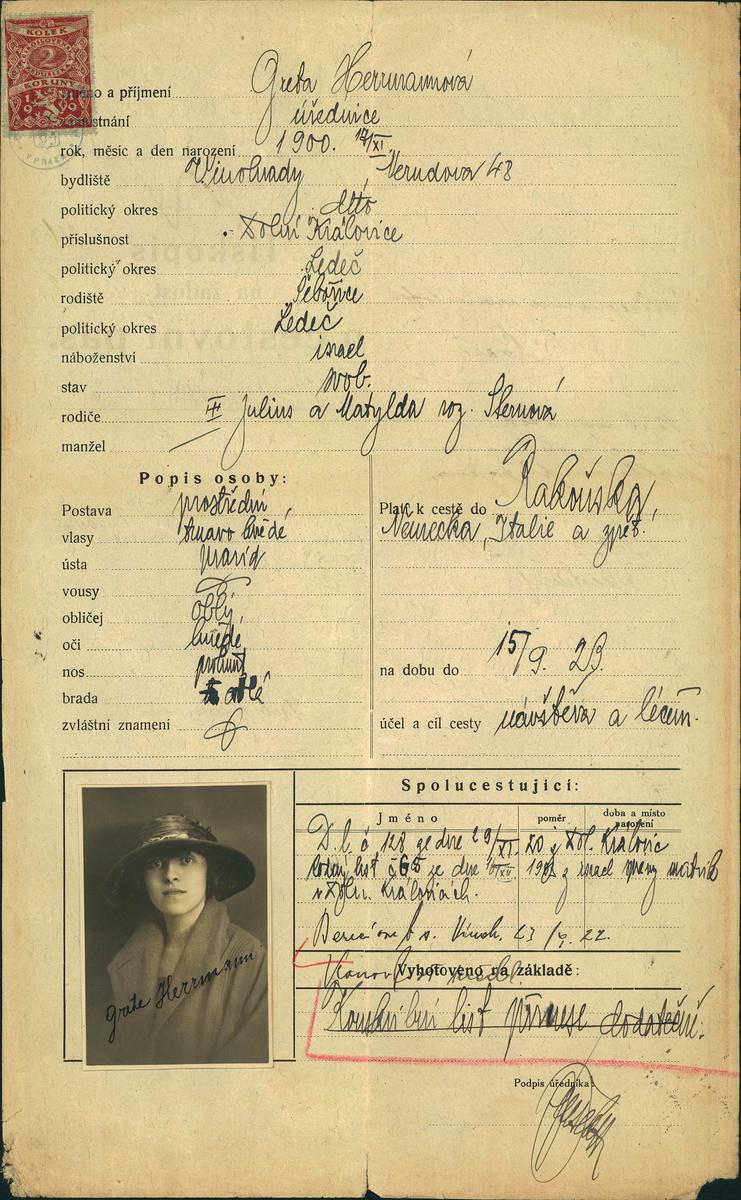 KOLEK
2
KORUNY
1919
Jméno a příjmení Greta Herrmannová
zaměstnání úřednice
rok, měsíc a den narození 1900. 12/XI
bydliště Vinohrady Nerudova 48
politický okres dtto
příslušnost Dolní Královice
politický okres Ledeč
rodiště
politický okres Ledeč
náboženství israel
stav svob.
rodiče Julius a Matylda roz. Sternová
manžel
Popis osoby:
Postava prostřední
vlasy tmavo hnědé
ústa
vousy
obličej oblý
oči hnědé
nos
brada oblá
zvláštní znamení
Platí k cestě do Rakouska,
Německa, Italie a zpět.
na dobu do 15/9. 23.
účel a cíl cesty návštěva a léčení.
Spolucestující:
Jméno poměr doba a místo narození
D. l. č 128 ze dne 29/XI 20 z Dol. Královic
rodný list č 65 ze dne
v Doln. Královicích.
Vyhotoveno na základě:
list přinese dodatečně.
Grete Herrmann
Podpis úředníka: